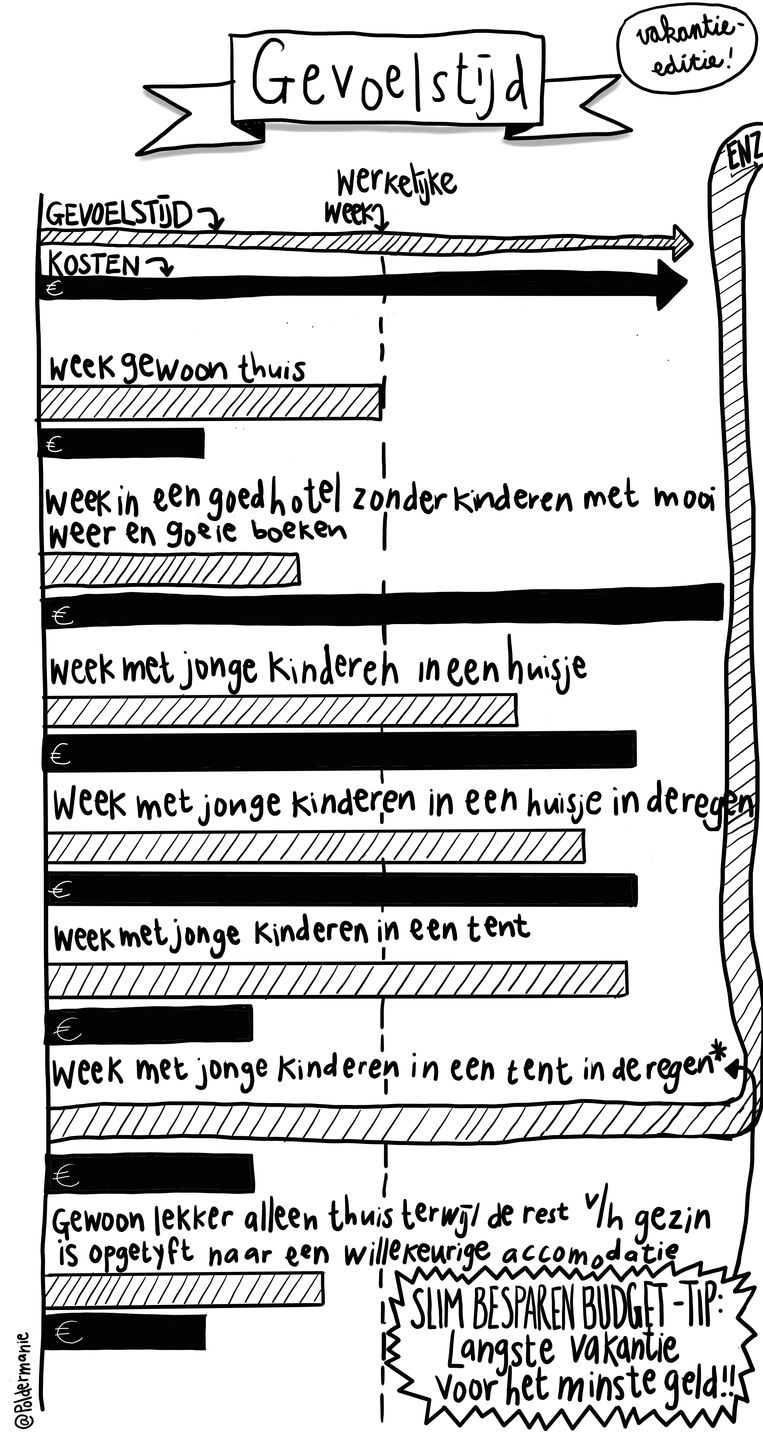 Gevoelstijd
vakantie-
editie!
ENZ
Werkelijke
week
GEVOELSTIJD
KOSTEN
€
week gewoon thuis
€
week in een goed hotel zonder kinderen met mooi
weer en goeie boeken
€
week met jonge kinderen in een huisje
€
Week met jonge kinderen in een huisje in de regen
€
week met jonge kinderen in een tent
€
week met jonge kinderen in een tent in de regen*
€
Gewoon lekker alleen thuis terwijl de rest v/h gezin
is opgetyft naar een willekeurige accomodatie
€
SLIM BESPAREN BUDGET-TIP:
Langste vakantie
voor het minste geld!!
@Poldermanie